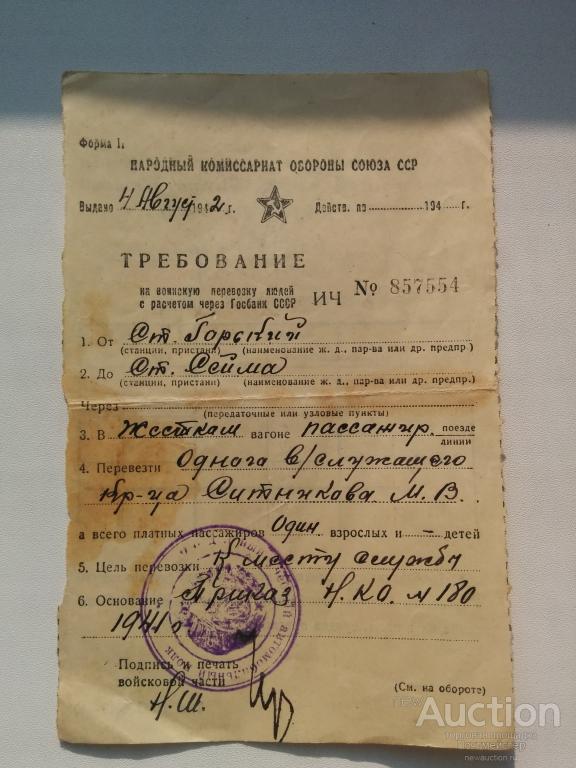 Форма 1.
НАРОДНЫЙ КОМИССАРИАТ ОБОРОНЫ СОЮЗА ССР
Выдано 4 Август 1942 г. Действ. по 194 г.
ТРЕБОВАНИЕ
на воинскую перевозку людей
с расчетом через Госбанк СССР
ИЧ № 857554
1. От Ст. Горький
(станции, пристани) (наименование ж. д., пар-ва или др. предпр.)
2. До Ст. Сейма
(станции, пристани) (наименование ж. д., пар-ва или др. предпр.)
Через
(передаточные или узловые пункты)
3. В Жестком вагоне пассажир. поезде
линии
4. Перевезти Одного в/служащего
Кр-ца Ситникова М. В.
а всего платных пассажиров Один взрослых и — детей
5. Цель перевозки К месту службы
6. Основание Приказ Н.КО. № 180
1941 г.
автомобильный
полк
Подпись и печать
войсковой части
Н.Ш.
(См. на обороте)
new Auction
торговая площадка
newauction.ru